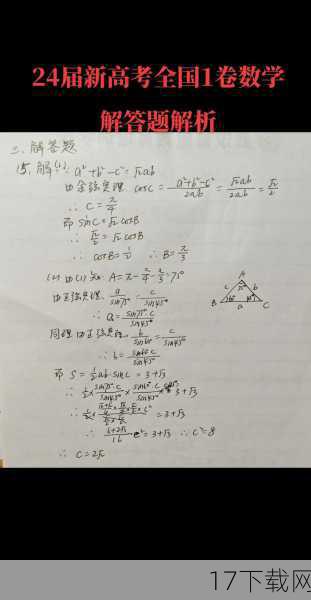 24届新高考全国1卷数学
解答题解析
三、解答题
15. 解(1): a²+b²-c²=√2ab
由余弦定理. cosC = (a²+b²-c²)/2ab = √2ab/2ab = √2/2
∴ C = π/4
即 sinC=√2 cosB
∴ √2/2 = √2 cosB
∴ cosB = 1/2 ∴ B= π/3
(2) 由(1)知. A=π-π/4-π/3=75°
由正弦定理. a/sin75° = c/sin45°
∴ a= sin75°·c/sin45°
同理 由正弦定理. b/sin60° = c/sin45°
∴ b= sin60°·c/sin45°
A
75°
c b
60° 45°
B a C
即 S = 1/2 ab·sinC = 3+√3
∴ 1/2 × sin75°·c/sin45° × sin60°·c/sin45° × 3+√3
= 3+√3
∴ c²=8
∴ C=2√2
17下载网